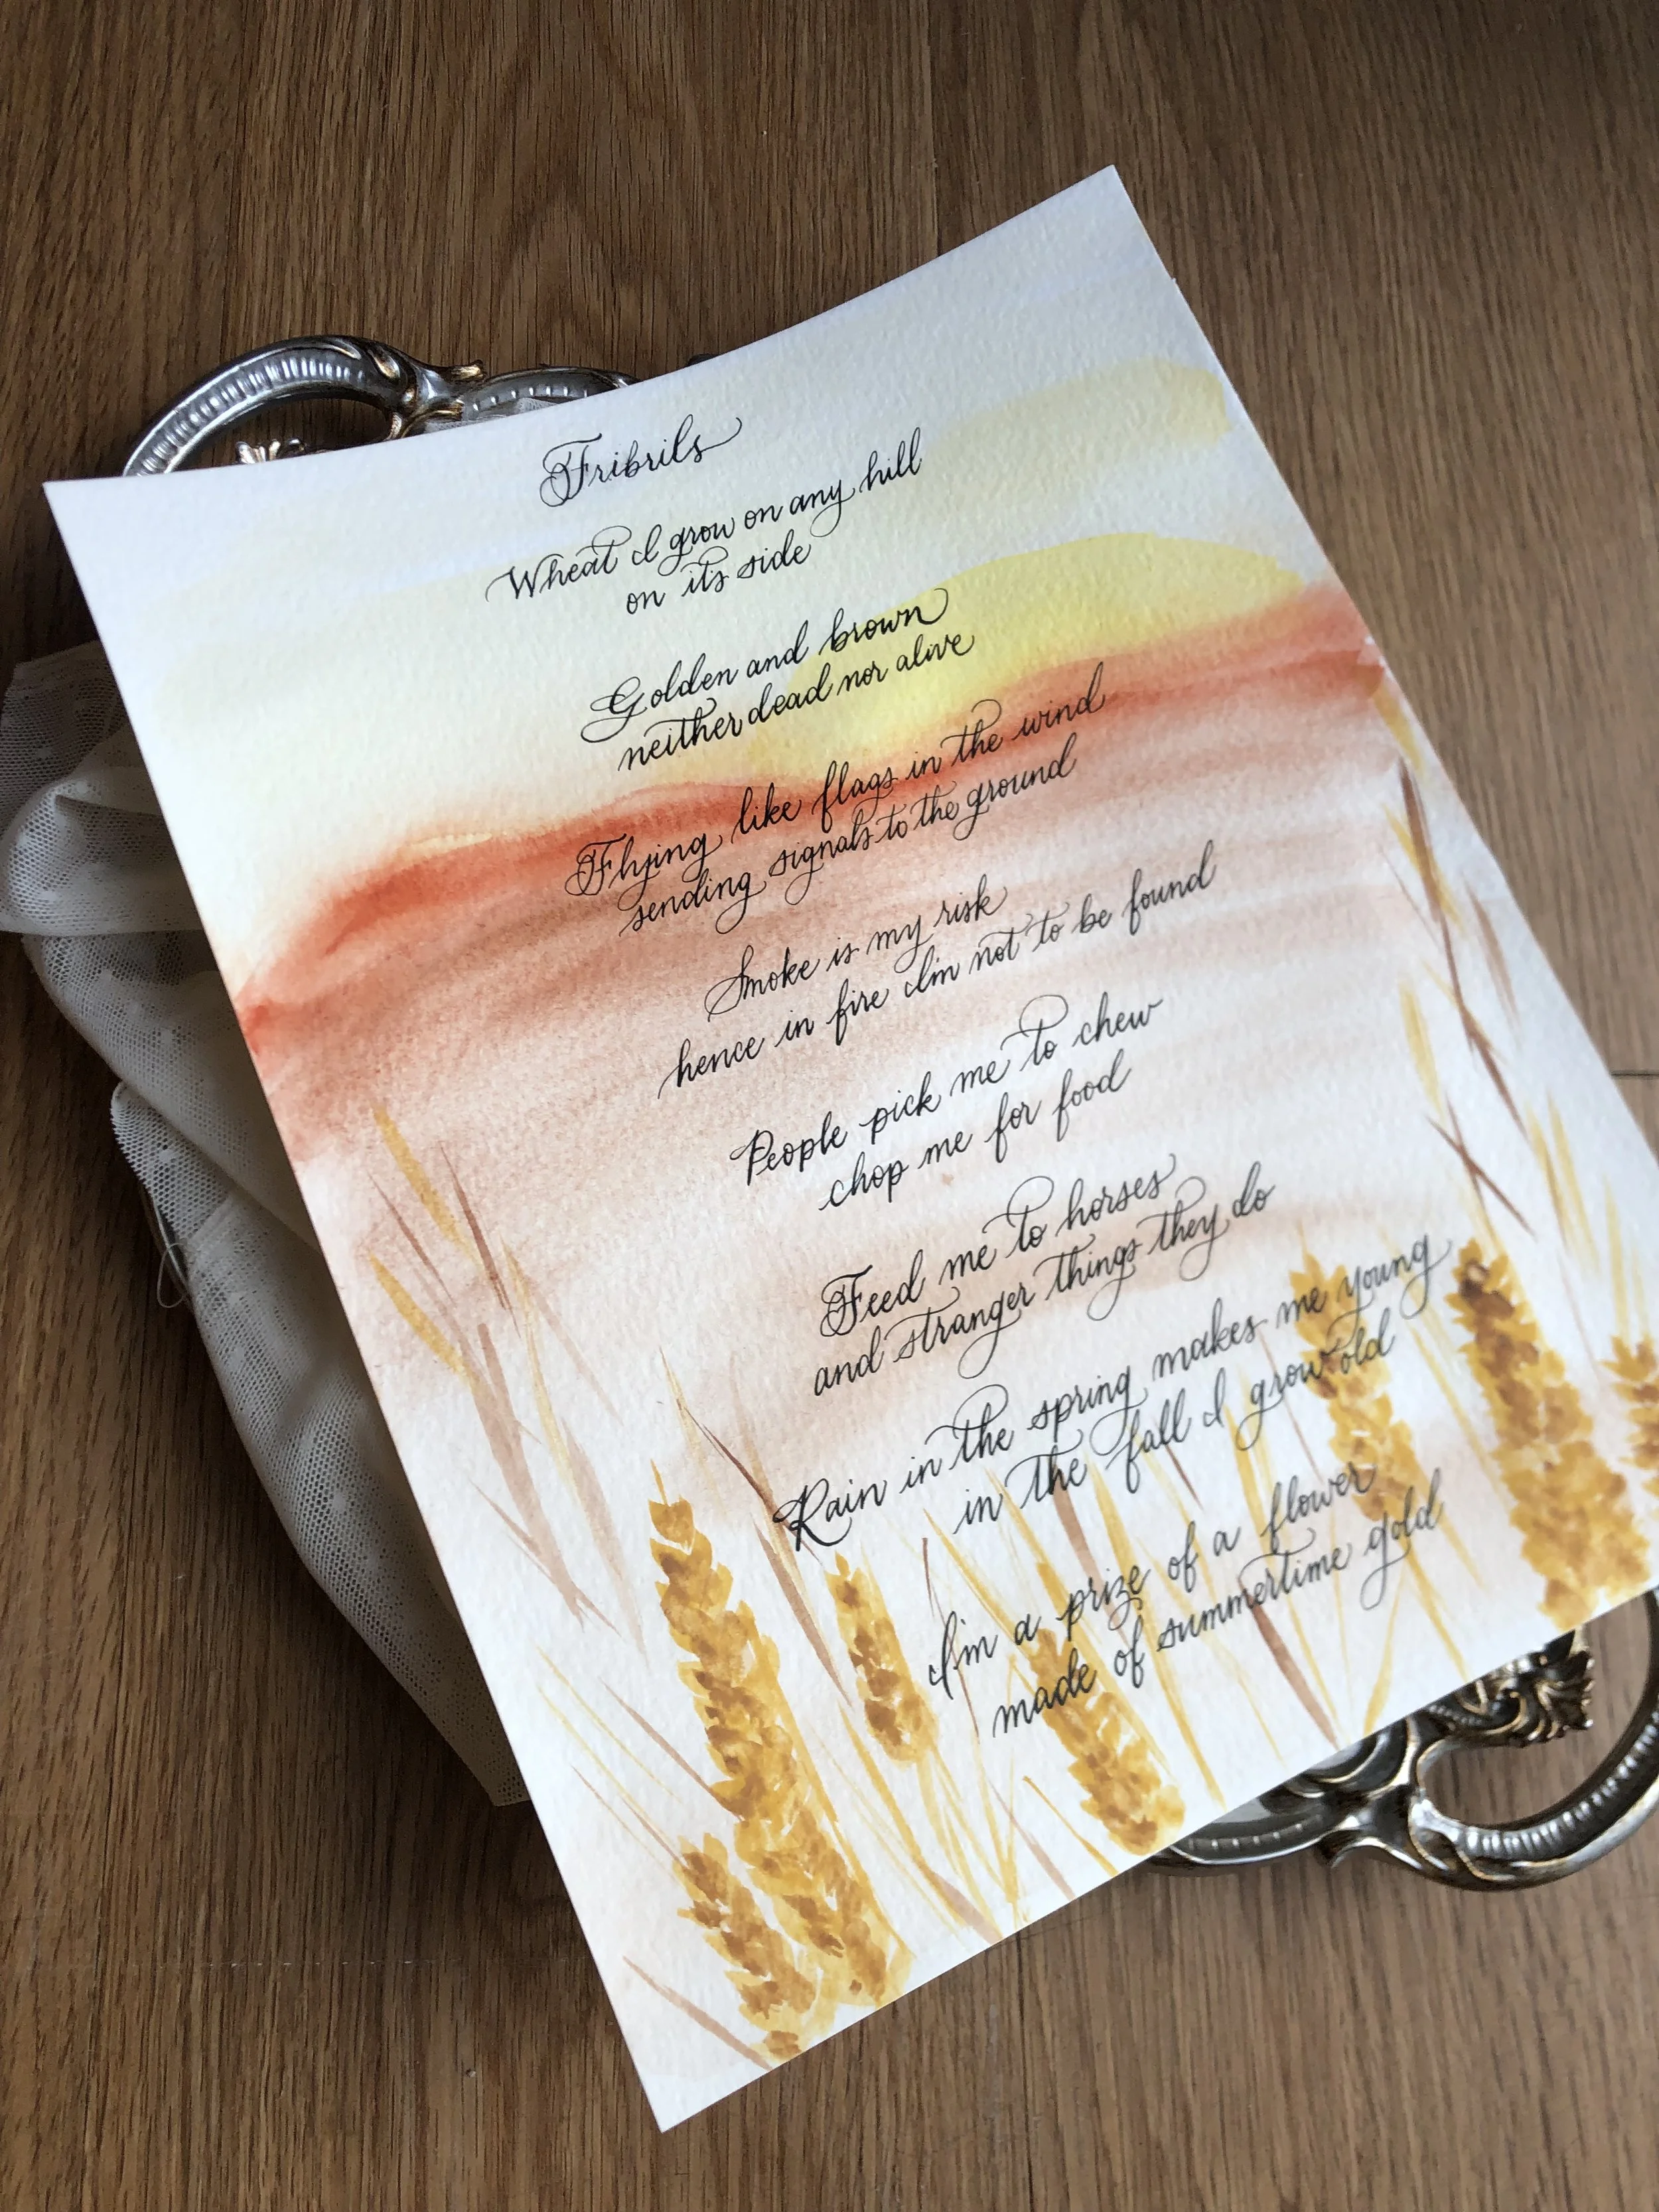 Fribrils
Wheat I grow on any hill
on its side
Golden and brown
neither dead nor alive
Flying like flags in the wind
sending signals to the ground
Smoke is my risk
hence in fire I'm not to be found
People pick me to chew
chop me for food
Feed me to horses
and stranger things they do
Rain in the spring makes me young
in the fall I grow old
I'm a prize of a flower
made of summertime gold